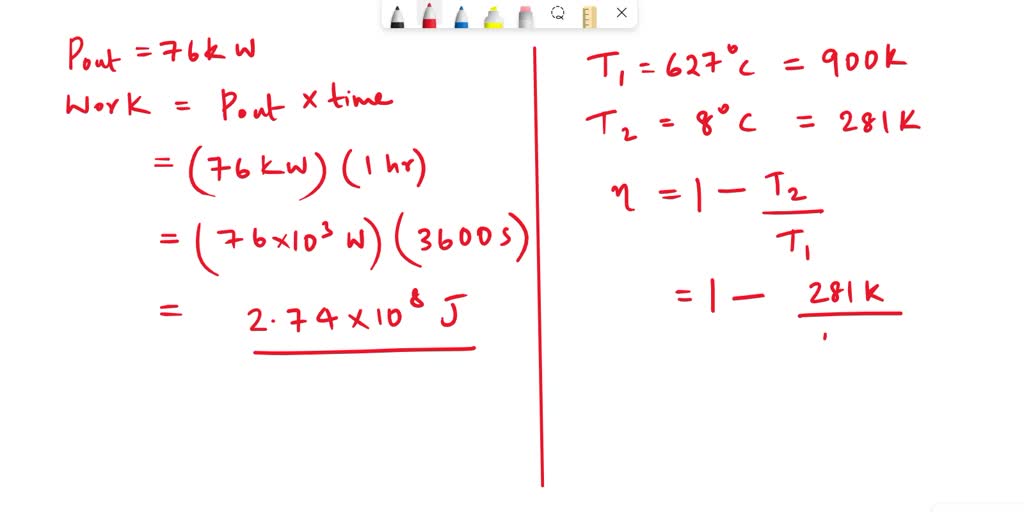 Pout = 76kW
Work = Pout × time
= (76 kW) (1 hr)
= (76×10³ W) (3600 s)
= 2.74 × 10⁸ J
T₁ = 627°C = 900K
T₂ = 8°C = 281K
η = 1 - T₂ / T₁
= 1 - 281K /